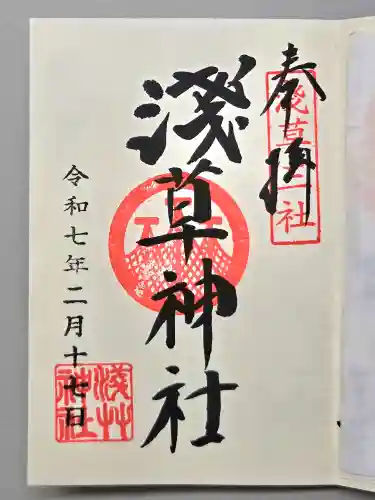 奉拝
淺草三社
淺草神社
令和七年二月十七日
淺草神社